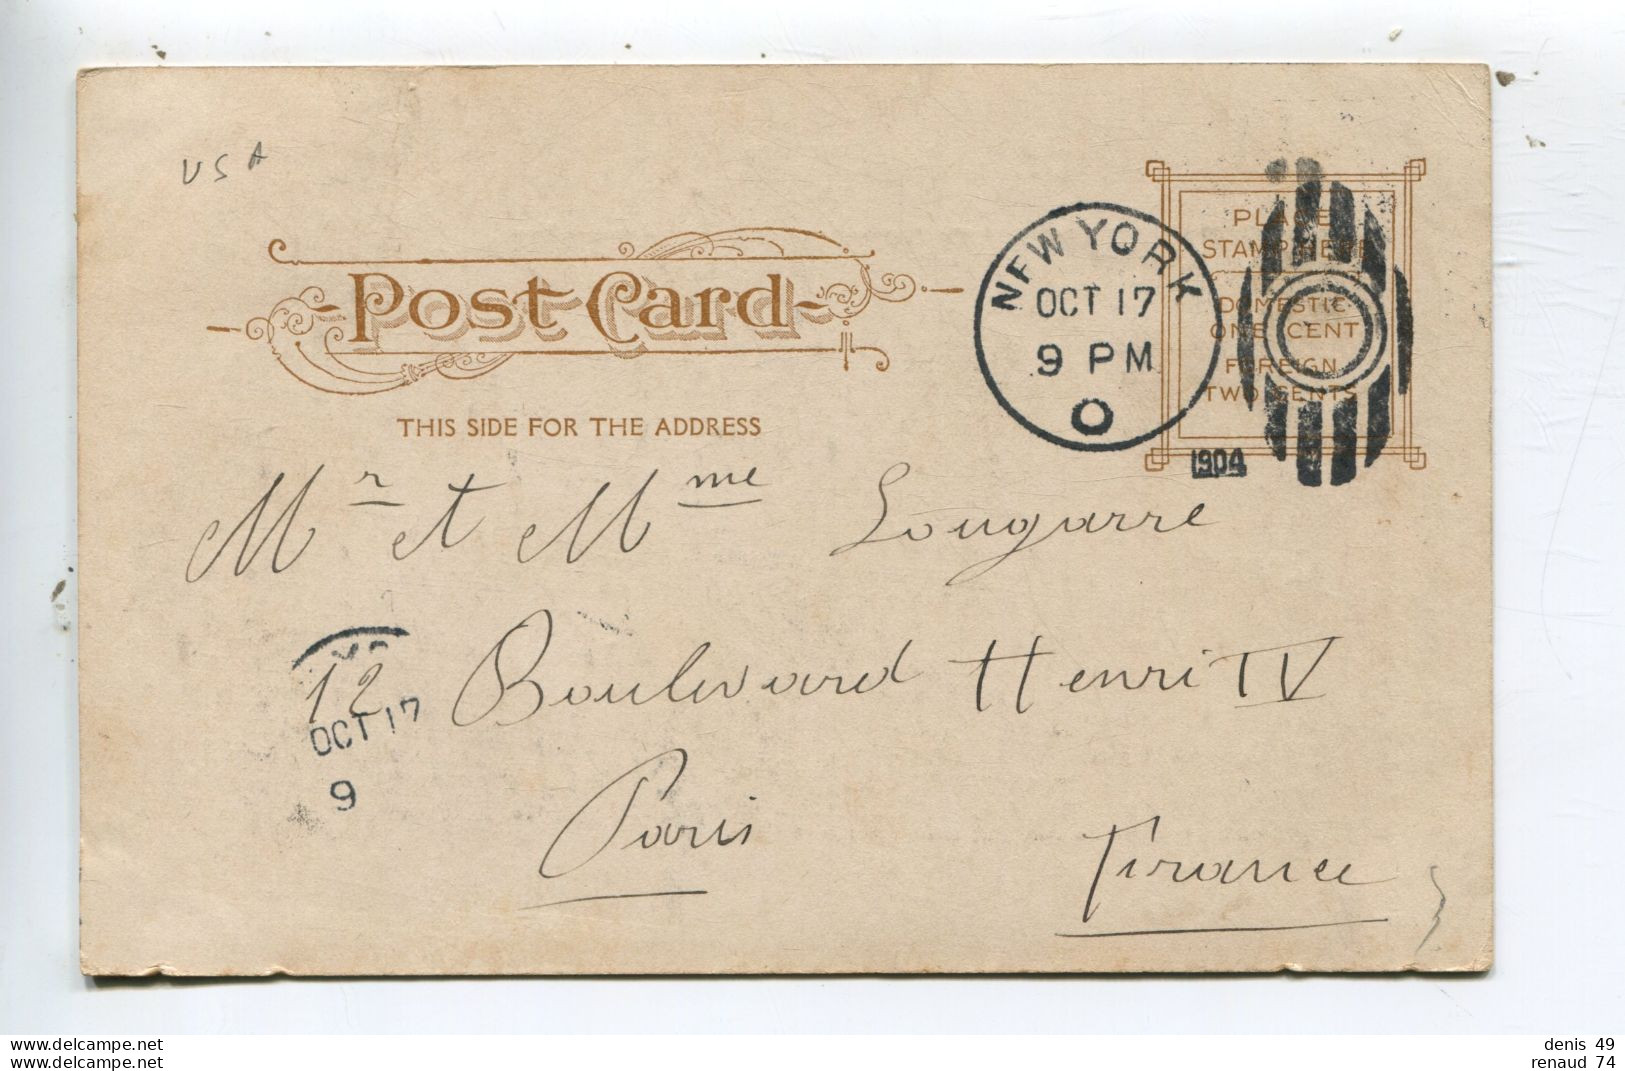 USA
Post Card
THIS SIDE FOR THE ADDRESS
NEW YORK
OCT 17
9 PM
O
1904
PLACE
STAMP HERE
DOMESTIC
ONE CENT
FOREIGN
TWO CENTS
Mr et Mme Lougarre
12 Boulevard Henri IV
OCT 17
9
Paris
France
www.delcampe.net
www.delcampe.net
denis 49
renaud 74